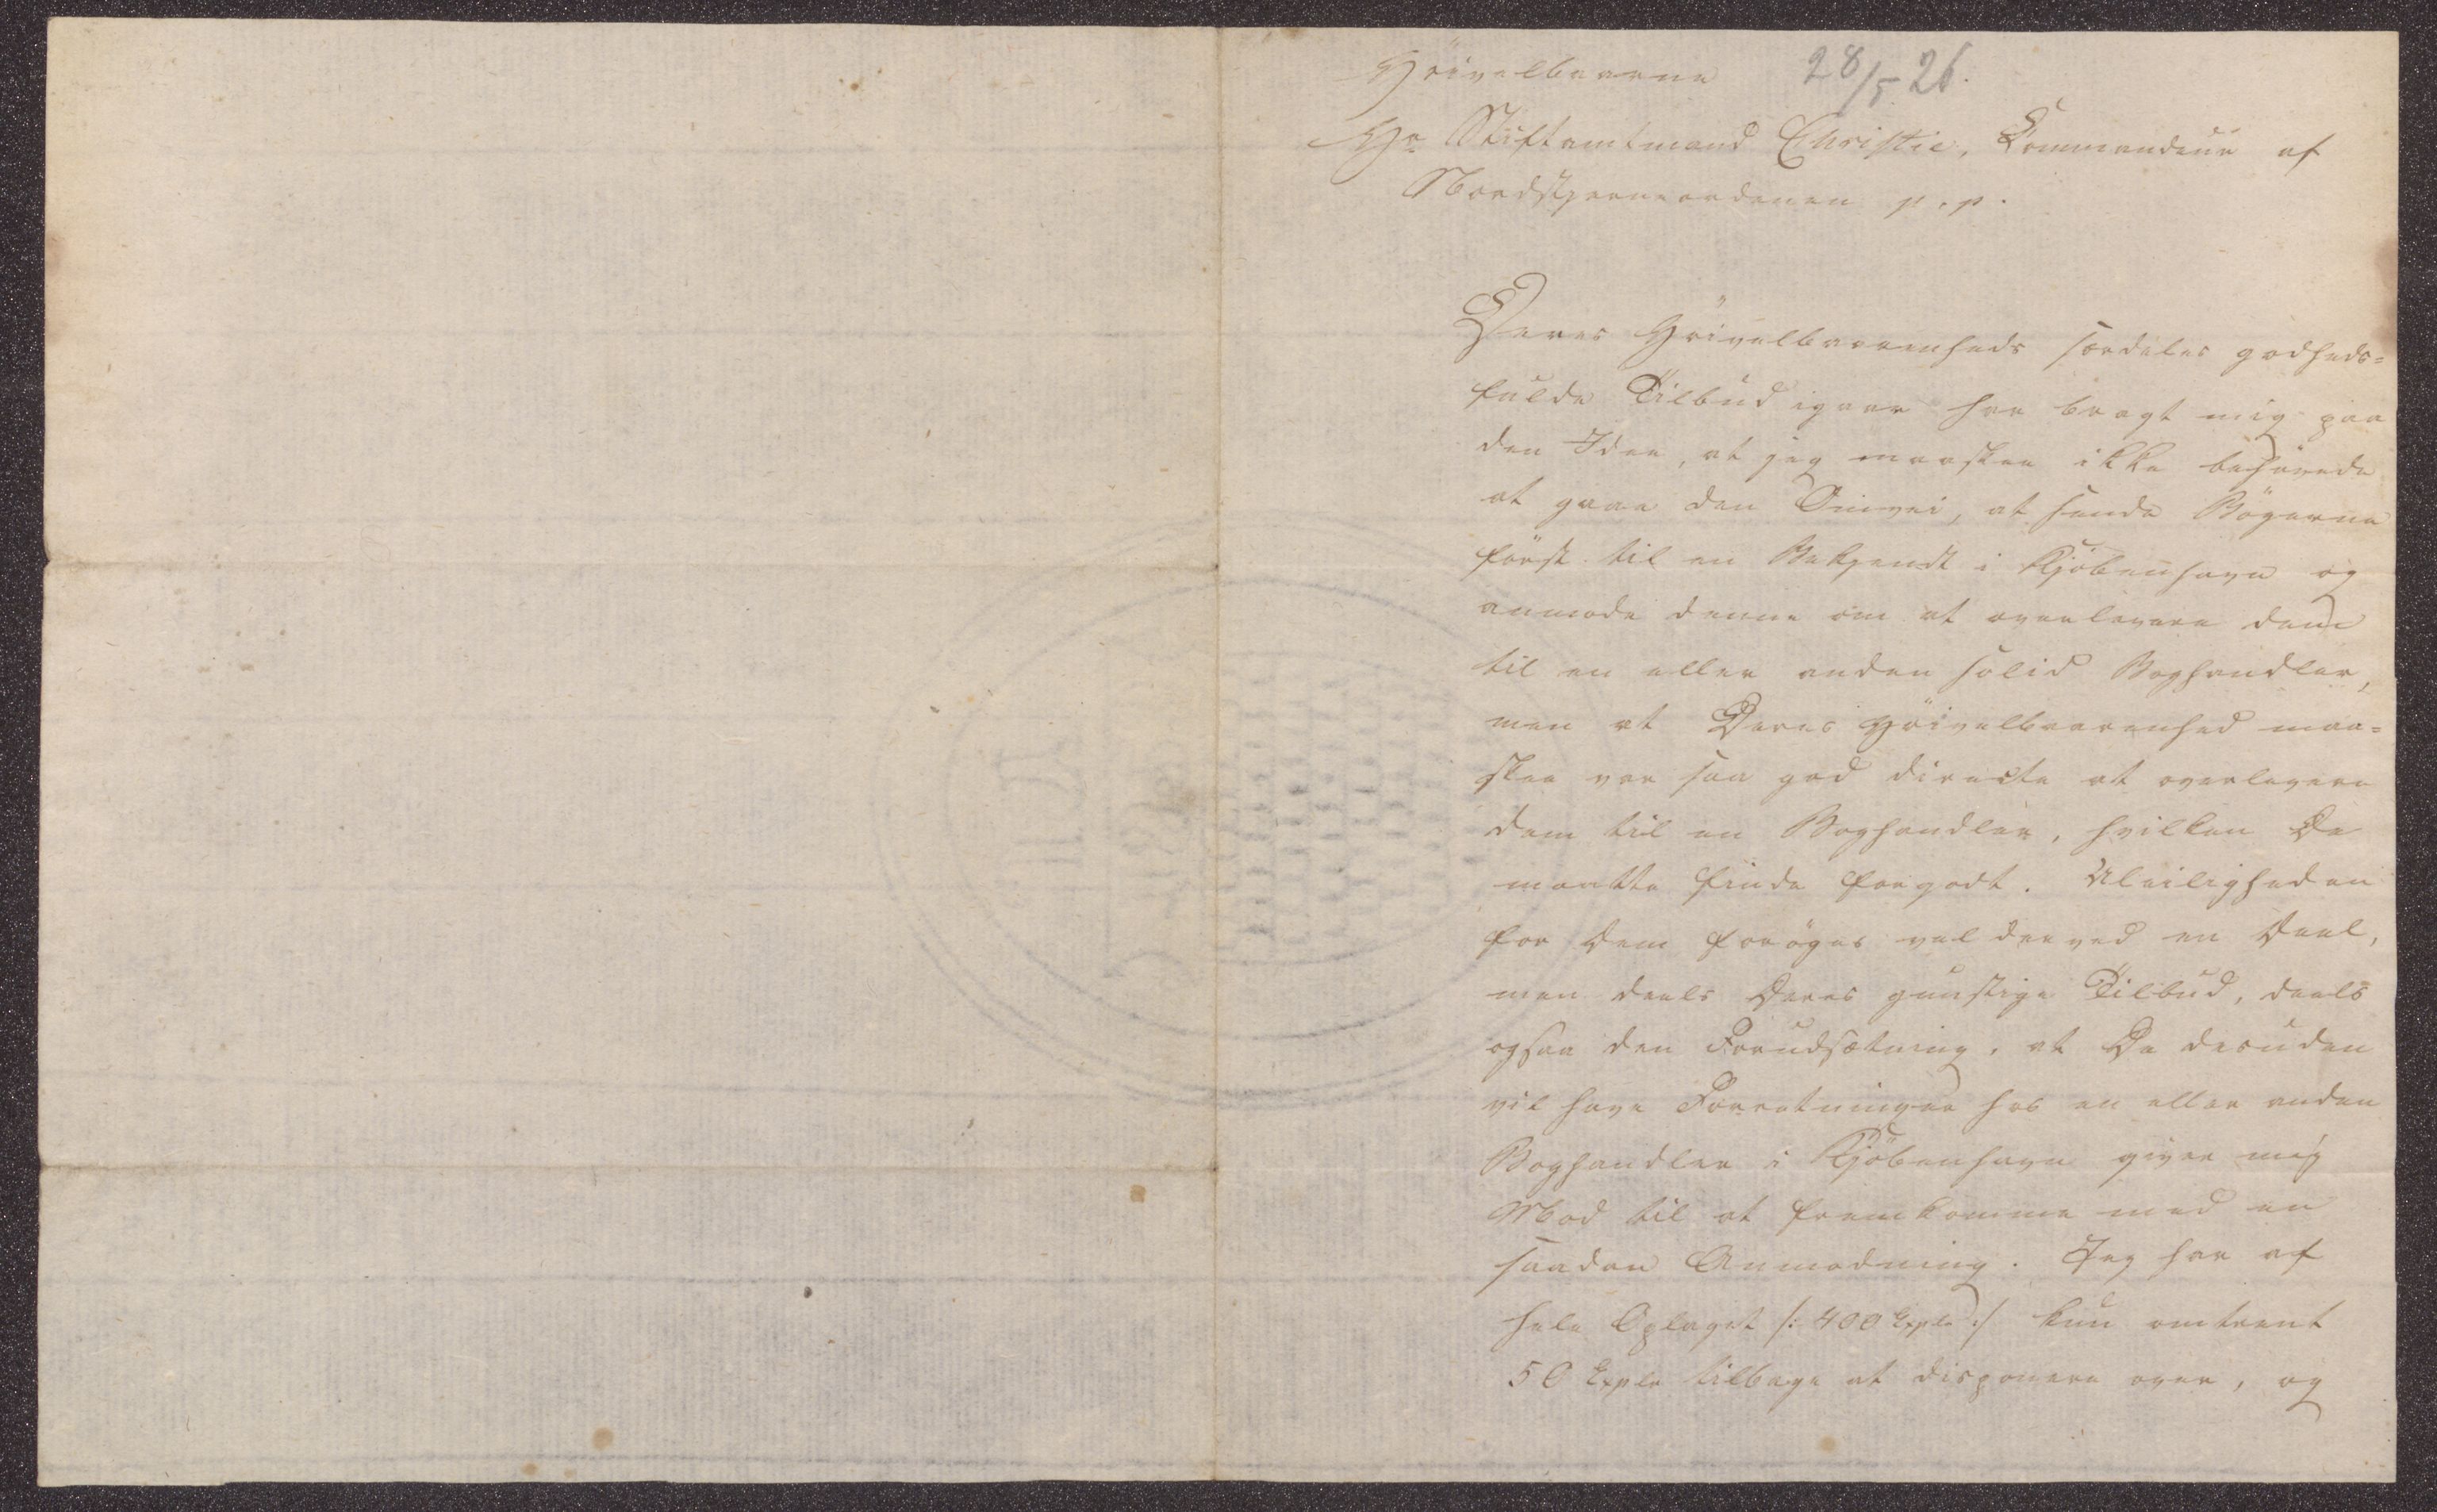 Höivelbaarne 28/5 26.
Hr Stiftamtmand Christie, Commandeur af
Nordstjerneordenen p.p.
Deres Höivelbaarenheds særdeles godheds=
fulde Tilbud igaar har bragt mig paa
den Idee, at jeg maaskee ikke behövede
at gaae den Omvei, at sende Bögerne
först til en Bekjendt i Kjöbenhavn og
anmode denne om at overlevere dem
til en eller anden solid Boghandler,
men at Deres Höivelbaarenhed maa=
skee var saa god directe at overlevere
dem til en Boghandler, hvilken De
maatte finde forgodt. Uleiligheden
for Dem foröges vel derved en Deel,
men deels Deres gunstige Tilbud, deels
ogsaa den Forudsætning, at De desuden
vil have Forretninger hos en eller anden
Boghandler i Kjöbenhavn giver mig
Mod til at fremkomme med en
saadan Anmodning. Jeg har af
hele Oplaget /: 400 Explr :/ kun omtrent
50 Explr tilbage at disponere over, og